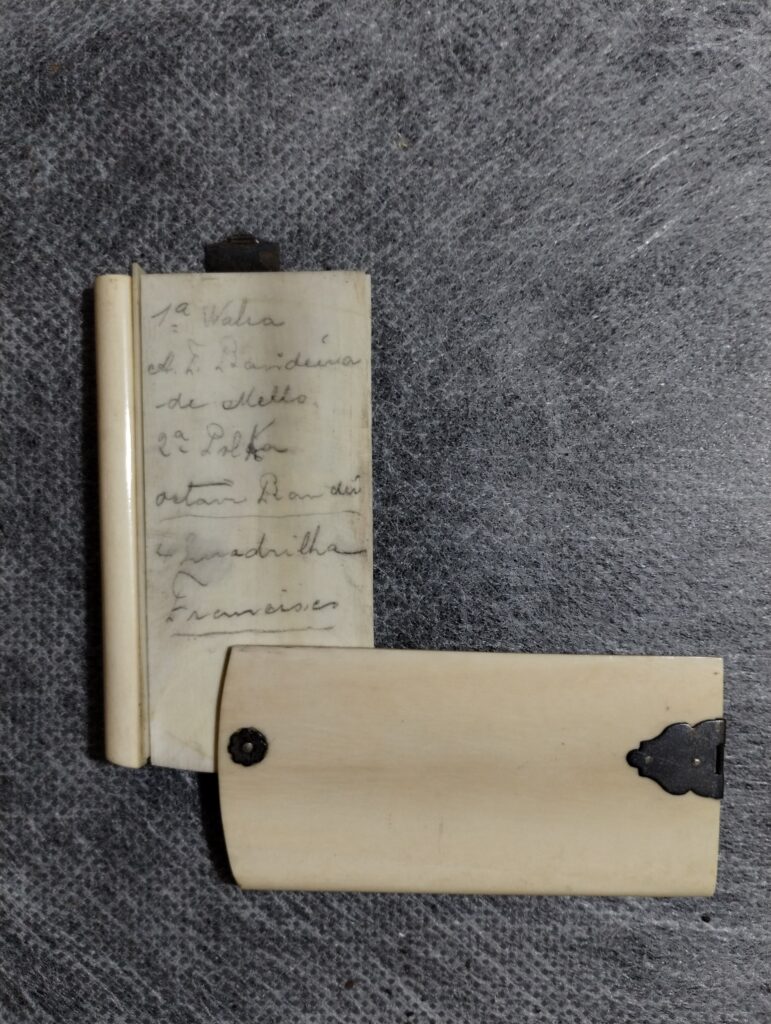 1ª Walsa
A. F. Bandeira
de Mello.
2ª Polka
Octavi Bandei
4 Quadrilha
Francisco